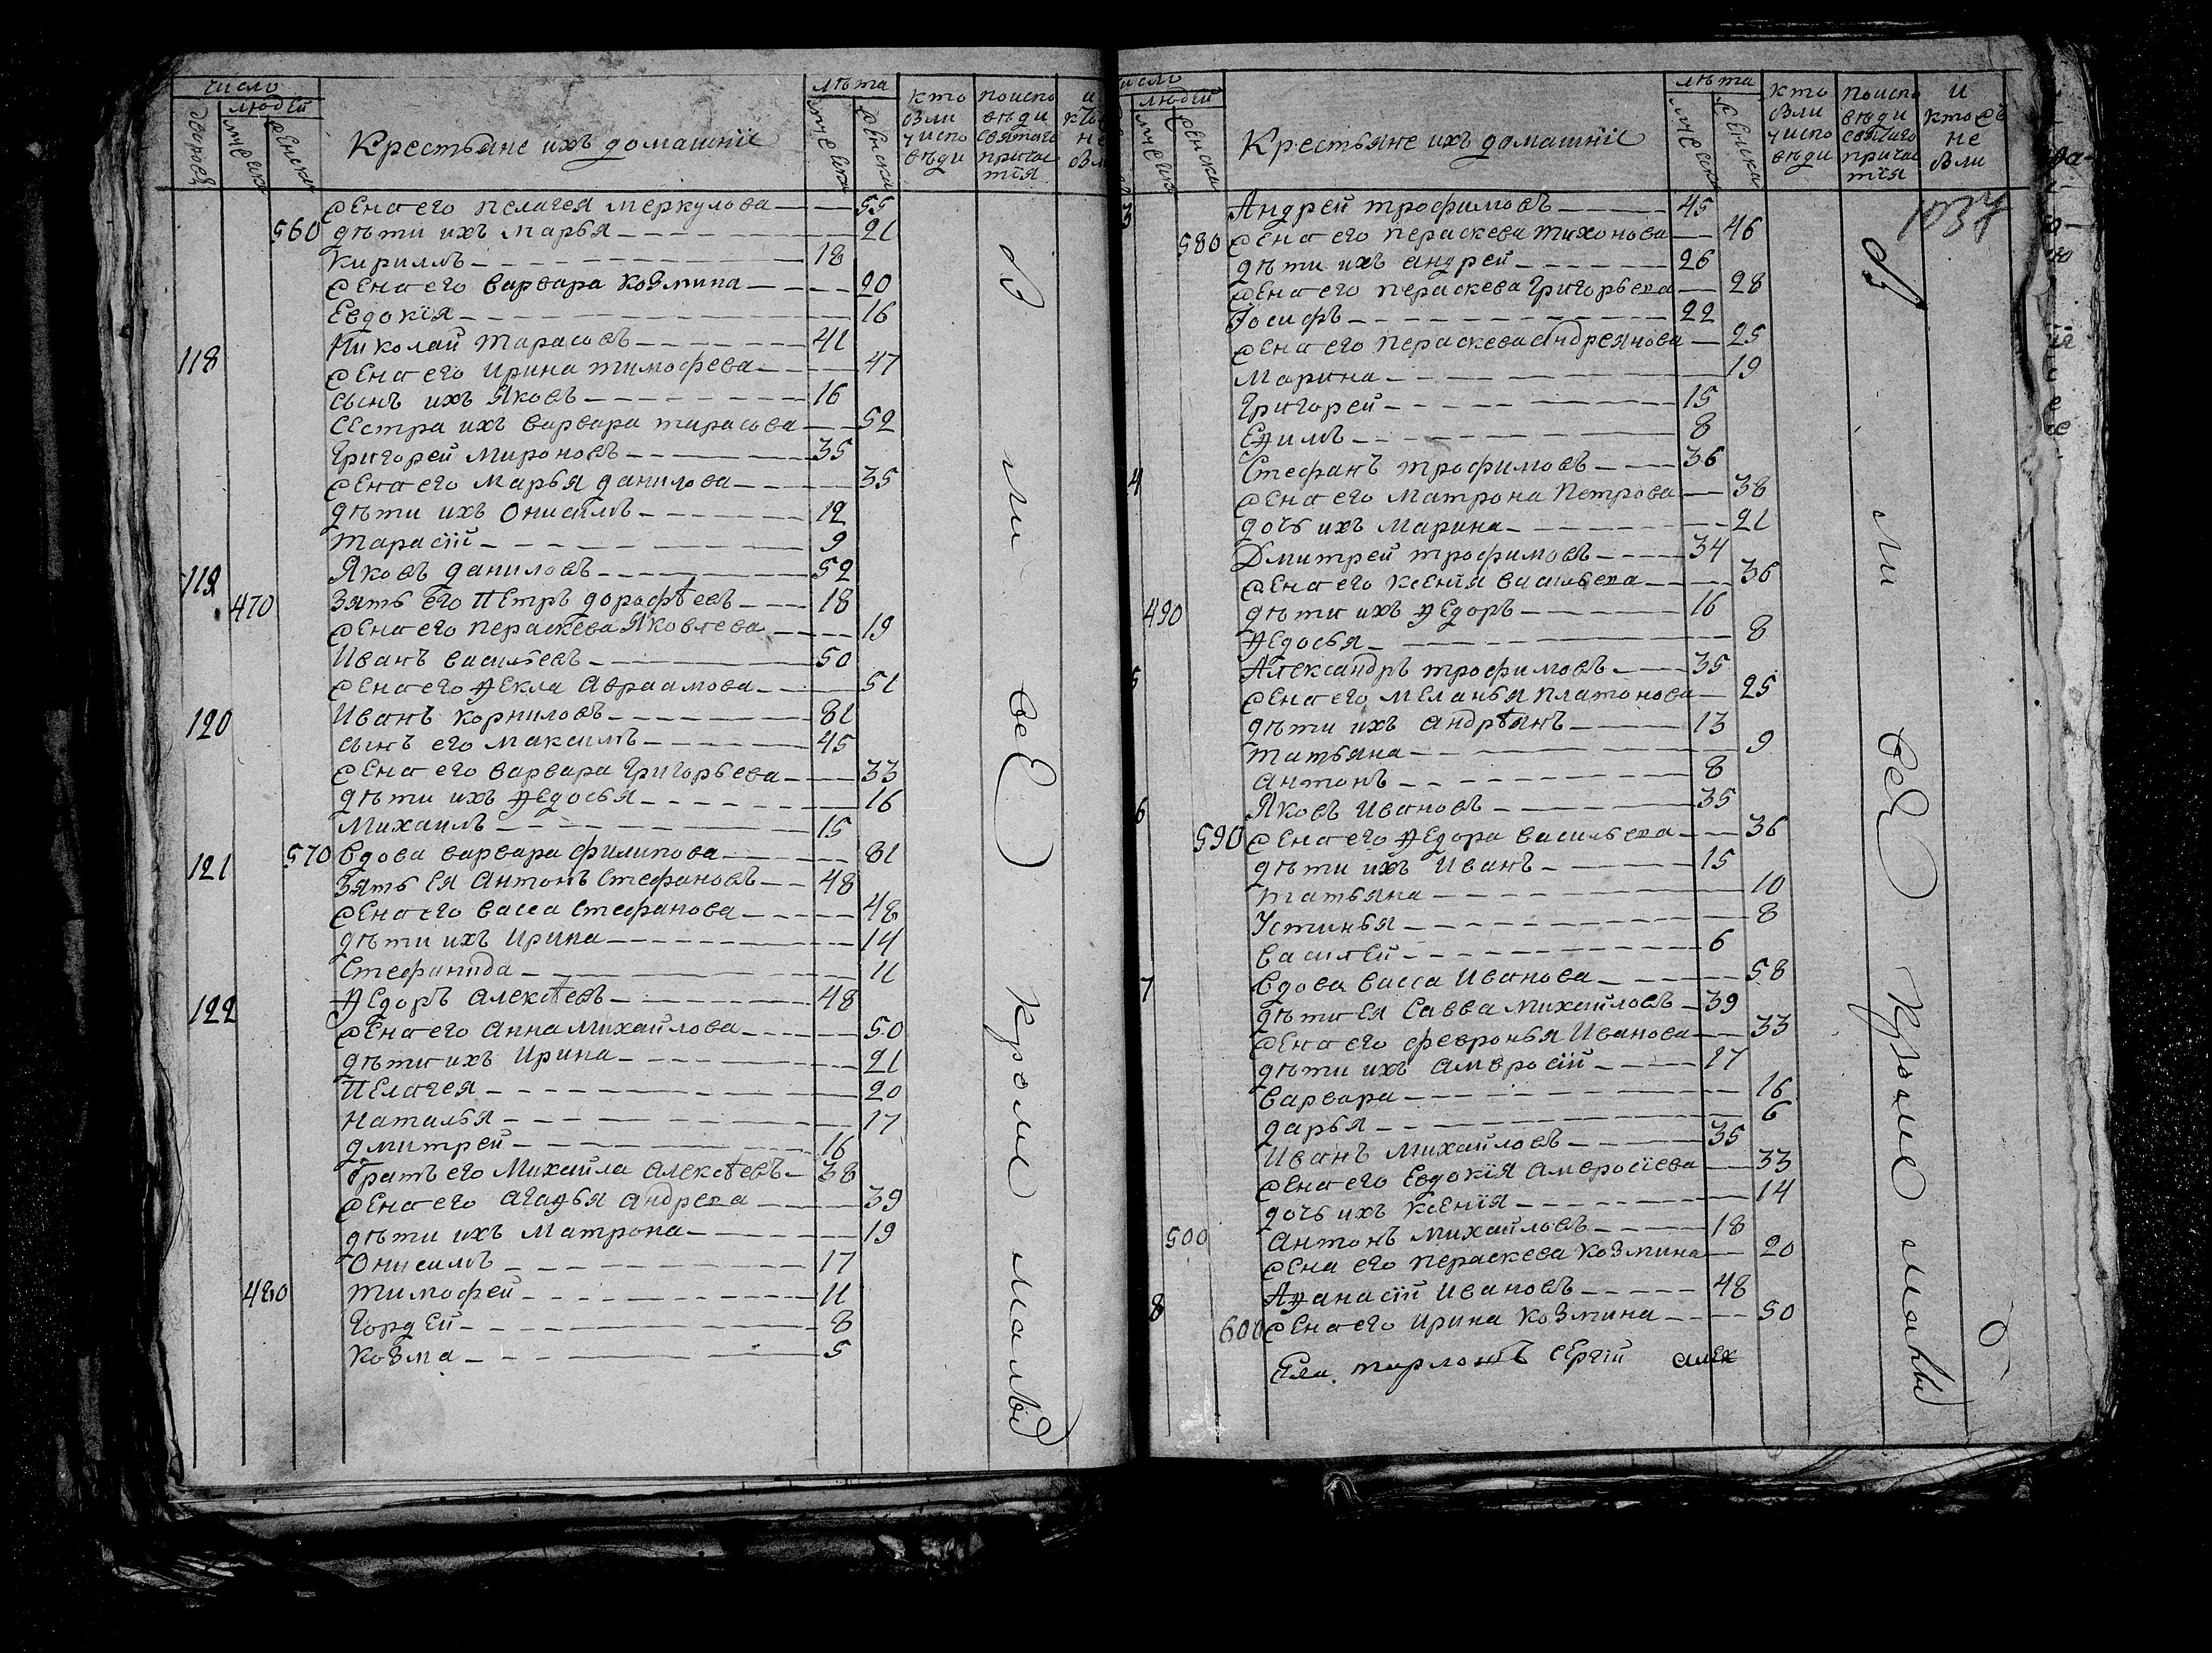 число
людей
дворовъ
мужеска
женска
Крестьяне ихъ домашнїе
лѣта
мужеска
женска
кто
были
у испо
вѣди
по испо
вѣди
святаго
причас
тїя
и
не
жена его Пелагея Меркулова 55
560 дѣти ихъ Марья 21
Кириллъ 18
жена его Варвара Козмина 20
Евдокїя 16
118 Николай Тарасовъ 41
жена его Ирина Тимофѣева 47
сынъ ихъ Яковъ 16
Сестра ихъ Варвара Тарасова 52
Григорей Мироновъ 35
жена его Марья Данилова 35
дѣти ихъ Онисимъ 12
Тарасїй 9
119 Яковъ Даниловъ 52
470 Зять его Петръ Дорофѣевъ 18
жена его Пераскева Яковлева 19
Иванъ Васильевъ 50
жена его Ѳекла Авраамова 51
120 Иванъ Корниловъ 81
сынъ его Максимъ 45
жена его Варвара Григорьева 33
дѣти ихъ Ѳедосья 16
Михаилъ 15
121 570 Вдова Варвара Филипова 81
Зять Ея Антонъ Стефановъ 48
жена его Васса Стефанова 48
дѣти ихъ Ирина 14
Стефанида 11
122 Ѳедоръ Алексѣевъ 48
жена его Анна Михайлова 50
дѣти ихъ Ирина 21
Пелагея 20
Наталья 17
Дмитрей 16
Братъ его Михайла Алексѣевъ 38
жена его Агаѳья Андреева 39
дѣти ихъ Матрона 19
Онисимъ 17
480 Тимофей 11
Гордей 8
Козма 5
Были всѣ Кромѣ малыхъ
число
людей
мужеска
женска
Крестьяне ихъ домашнїе
лѣта
мужеска
женска
кто
были
у испо
вѣди
по испо
вѣди
святаго
причас
тїя
и
кто съ
не
были
1034
3 Андрей Трофимовъ 45
580 жена его Пераскева Тихонова 46
дѣти ихъ Андрей 26
жена его Пераскева Григорьева 28
Іосифъ 22
жена его Пераскева Андреянова 25
Марина 19
Григорей 15
Еѳимъ 8
4 Стефанъ Трофимовъ 36
жена его Матрона Петрова 38
дочь ихъ Марина 21
Дмитрей Трофимовъ 34
жена его Ксенїя Васильева 36
490 дѣти ихъ Ѳедоръ 16
Ѳедосья 8
5 Александръ Трофимовъ 35
жена его Меланья Платонова 25
дѣти ихъ Андрѣянъ 13
Татьяна 9
Антонъ 8
6 Яковъ Ивановъ 35
590 жена его Ѳедора Васильева 36
дѣти ихъ Иванъ 15
Татьяна 10
Устинья 8
Василей 6
7 Вдова Васса Иванова 58
дѣти Ея Савва Михайловъ 39
жена его Февронья Иванова 33
дѣти ихъ Амвросїй 17
Варвара 16
Дарья 6
Иванъ Михайловъ 35
жена его Евдокїя Амвросїева 33
дочь ихъ Ксенїя 14
500 Антонъ Михайловъ 18
жена его Пераскева Козмина 20
8 Аѳанасїй Ивановъ 48
600 жена его Ирина Козмина 50
Сергїй
Были всѣ Кромѣ малыхъ